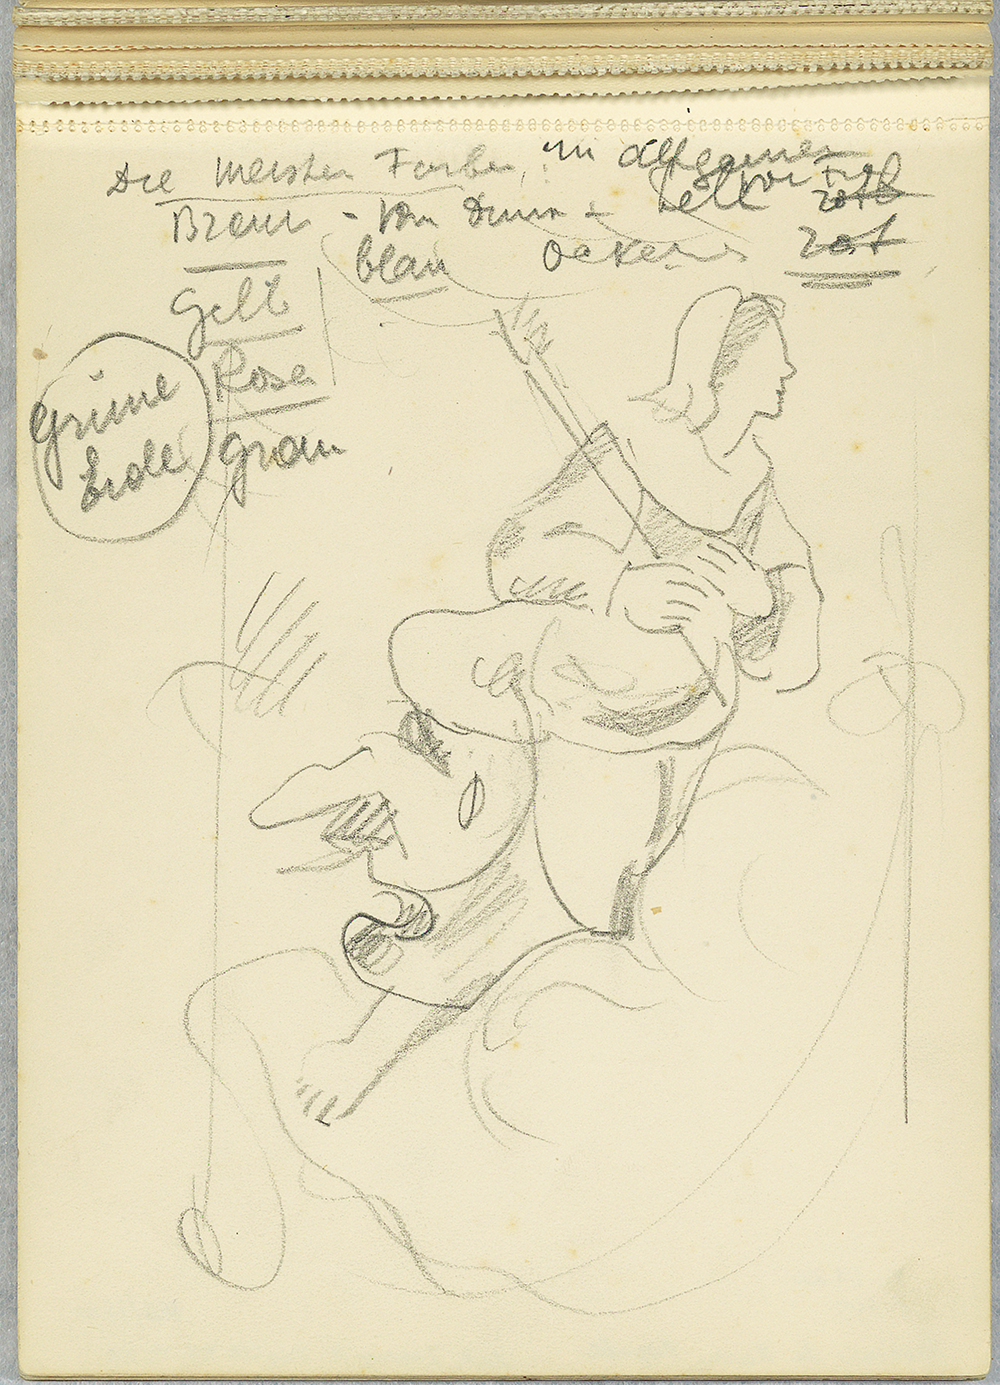 Die meisten Farben, im allgemeinen
Braun - von dunn - hell rot
blau Ocker rot
Gelb
Rosa
Grüne Erde grau